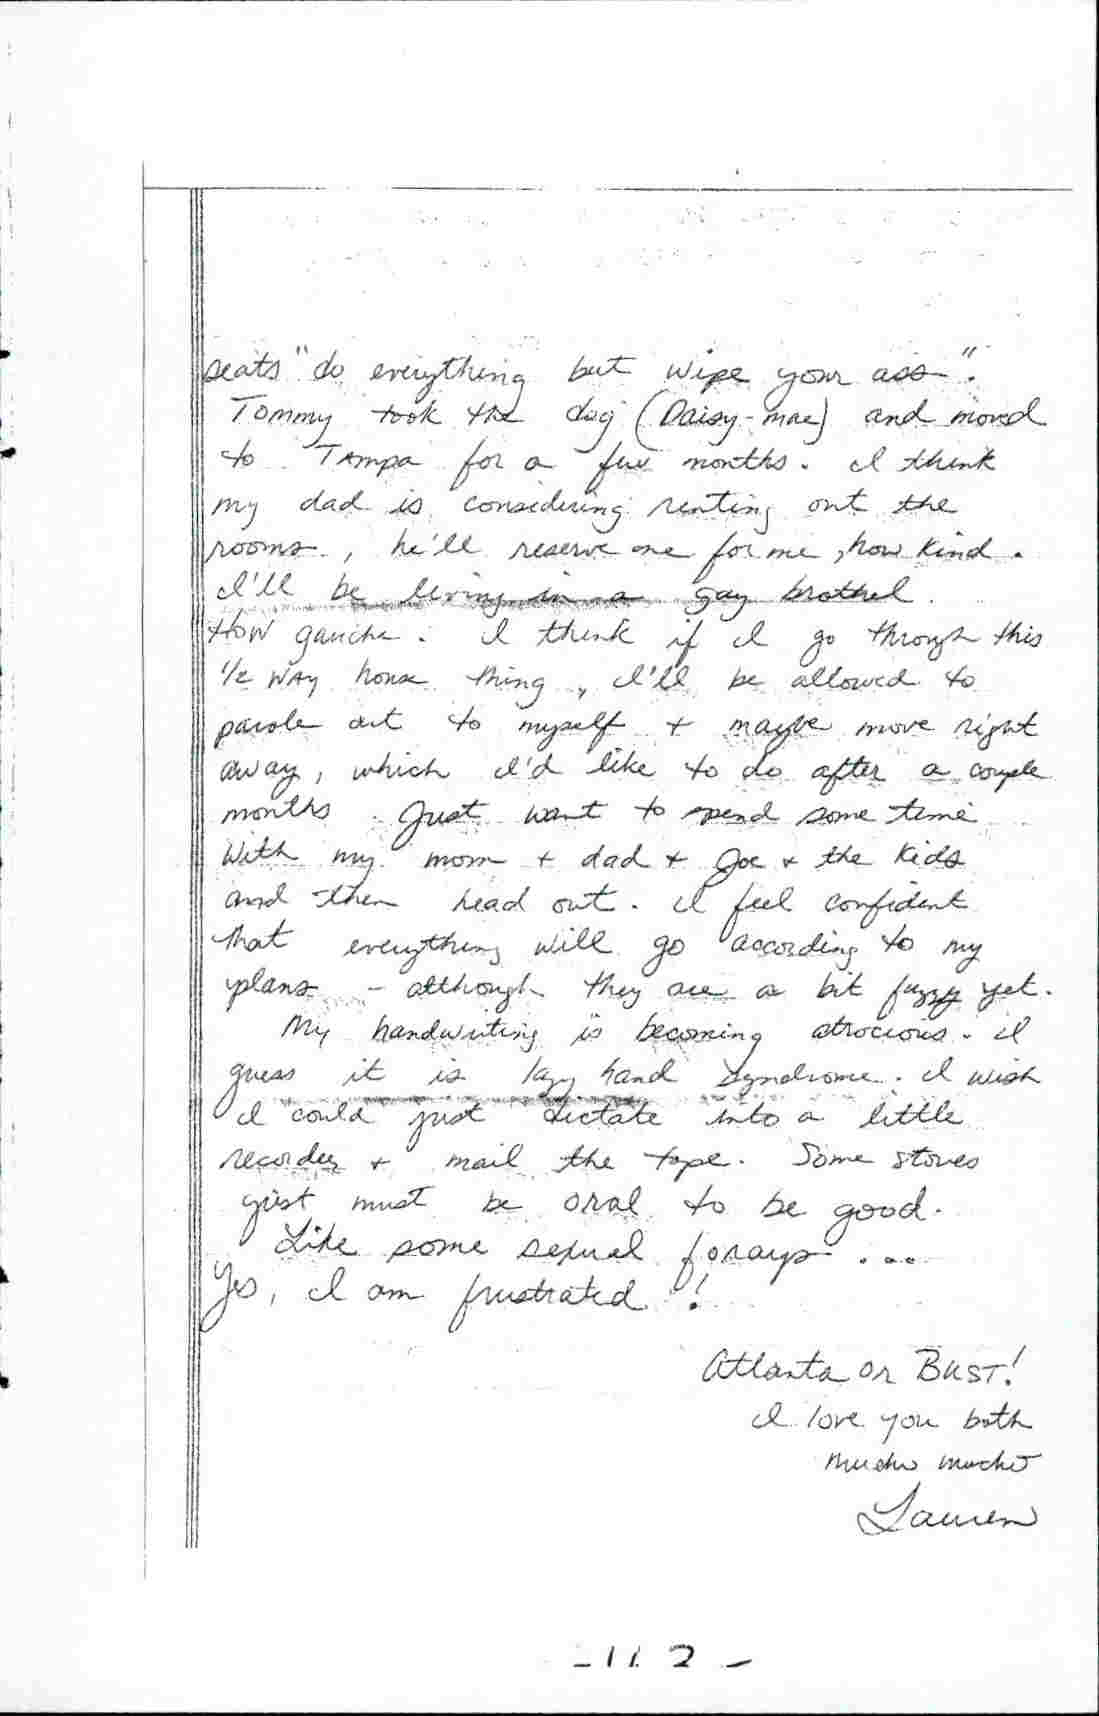 seats "do everything but wipe your ass".
Tommy took the dog (Daisy-mae) and moved
to TAmpa for a few months. I think
my dad is considering renting out the
rooms, he'll reserve one for me, how kind.
I'll be living in a gay brothel.
How gauche. I think if I go through this
1/2 WAy house thing, I'll be allowed to
parole out to myself + maybe move right
away, which I'd like to do after a couple
months. Just want to spend some time
With my mom + dad + Joe + the kids
and then head out. I feel confident
that everything will go according to my
plans - although they are a bit fuzzy yet.
My handwriting is becoming atrocious. I
guess it is lazy hand syndrome. I wish
I could just dictate into a little
recorder + mail the tape. Some stories
just must be oral to be good.
Like some sexual forays ...
Yes, I am frustrated!
Atlanta or BUST!
I love you both
mucho mucho
Lauren
-112-